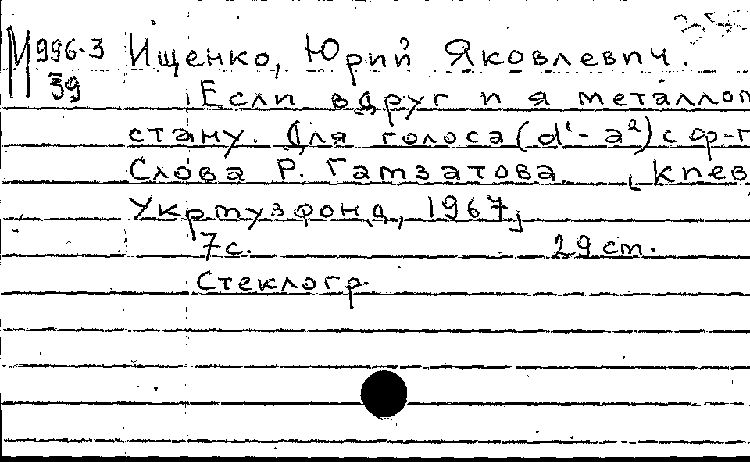 М 996-3 Ищенко, Юрий Яковлевич.
39 Если вдруг и я металлом
стану. Для голоса (d¹-a²) с ф-п
Слова Р. Гамзатова. [Киев,
Укрмузфонд, 1967]
7 с. 29 см.
Стеклогр.